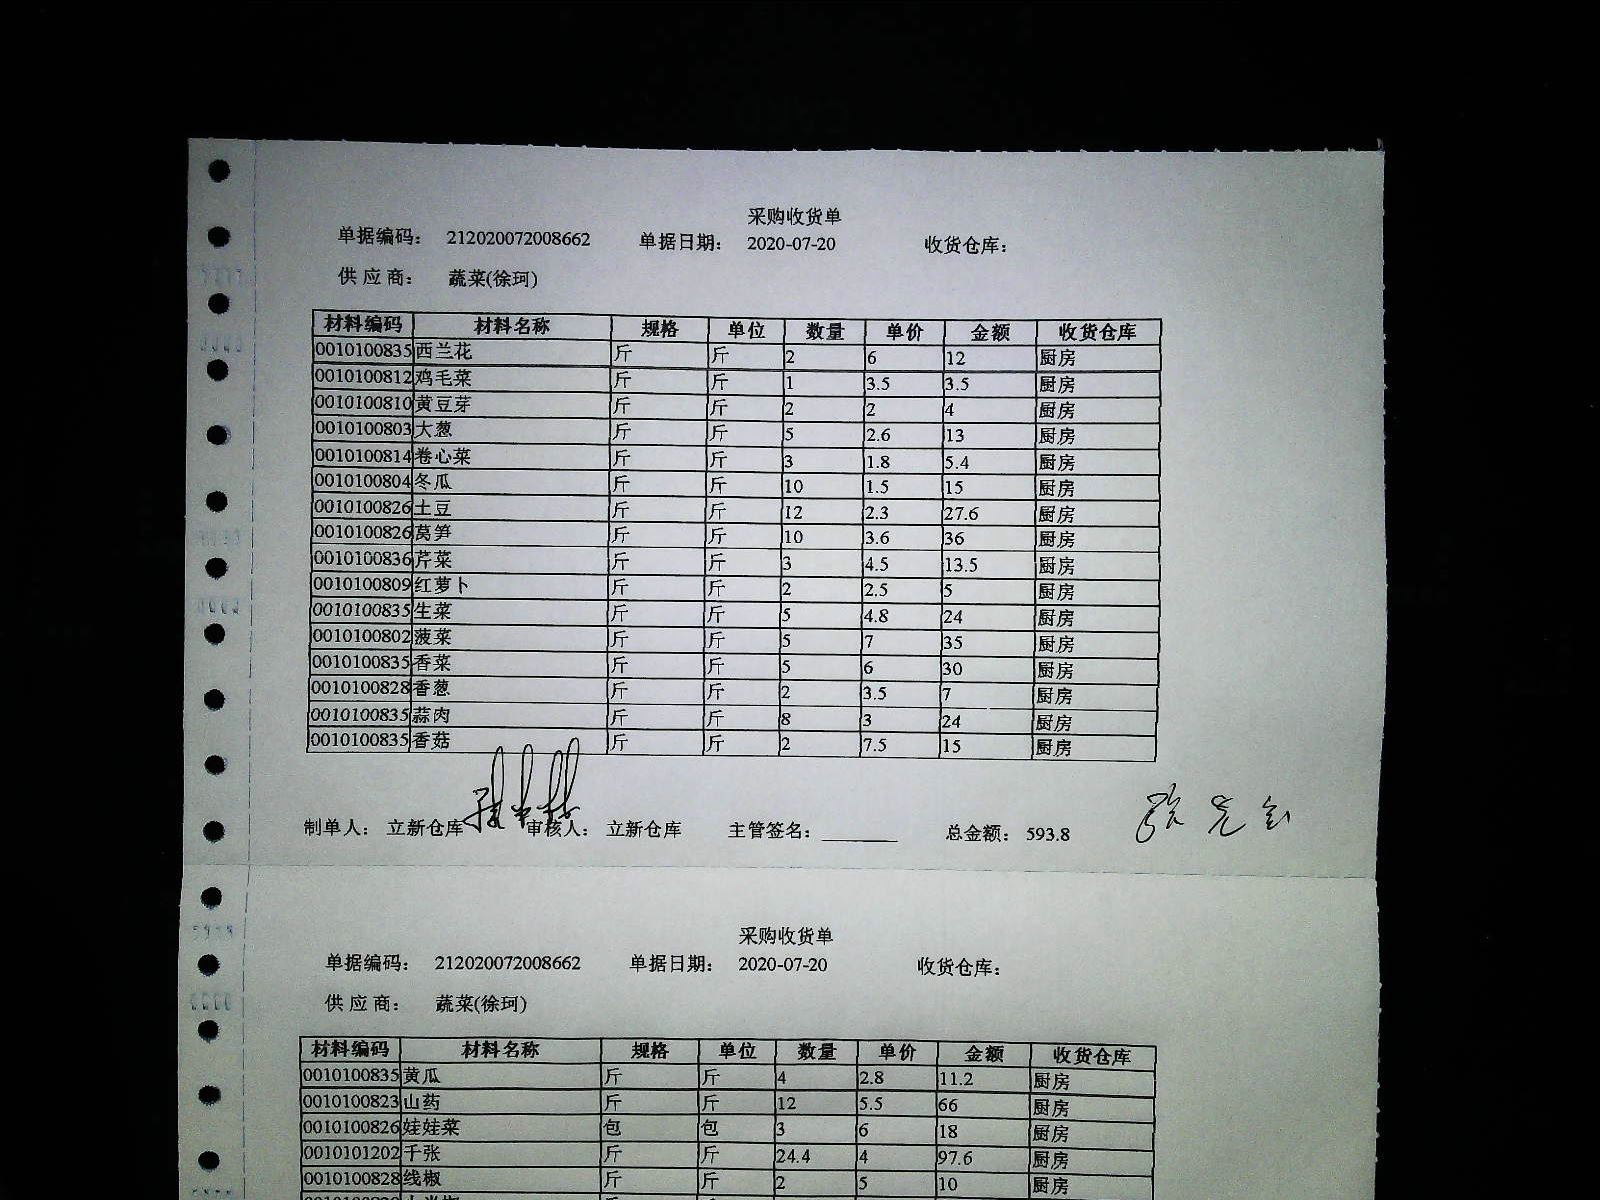 采购收货单
单据编码： 212020072008662 单据日期： 2020-07-20 收货仓库：
供 应 商： 蔬菜(徐珂)
材料编码 材料名称 规格 单位 数量 单价 金额 收货仓库
0010100835 西兰花 斤 斤 2 6 12 厨房
0010100812 鸡毛菜 斤 斤 1 3.5 3.5 厨房
0010100810 黄豆芽 斤 斤 2 2 4 厨房
0010100803 大葱 斤 斤 5 2.6 13 厨房
0010100814 卷心菜 斤 斤 3 1.8 5.4 厨房
0010100804 冬瓜 斤 斤 10 1.5 15 厨房
0010100826 土豆 斤 斤 12 2.3 27.6 厨房
0010100826 莴笋 斤 斤 10 3.6 36 厨房
0010100836 芹菜 斤 斤 3 4.5 13.5 厨房
0010100809 红萝卜 斤 斤 2 2.5 5 厨房
0010100835 生菜 斤 斤 5 4.8 24 厨房
0010100802 菠菜 斤 斤 5 7 35 厨房
0010100835 香菜 斤 斤 5 6 30 厨房
0010100828 香葱 斤 斤 2 3.5 7 厨房
0010100835 蒜肉 斤 斤 8 3 24 厨房
0010100835 香菇 斤 斤 2 7.5 15 厨房
制单人： 立新仓库 审核人： 立新仓库 主管签名：________ 总金额： 593.8
采购收货单
单据编码： 212020072008662 单据日期： 2020-07-20 收货仓库：
供 应 商： 蔬菜(徐珂)
材料编码 材料名称 规格 单位 数量 单价 金额 收货仓库
0010100835 黄瓜 斤 斤 4 2.8 11.2 厨房
0010100823 山药 斤 斤 12 5.5 66 厨房
0010100826 娃娃菜 包 包 3 6 18 厨房
0010101202 千张 斤 斤 24.4 4 97.6 厨房
0010100828 线椒 斤 斤 2 5 10 厨房